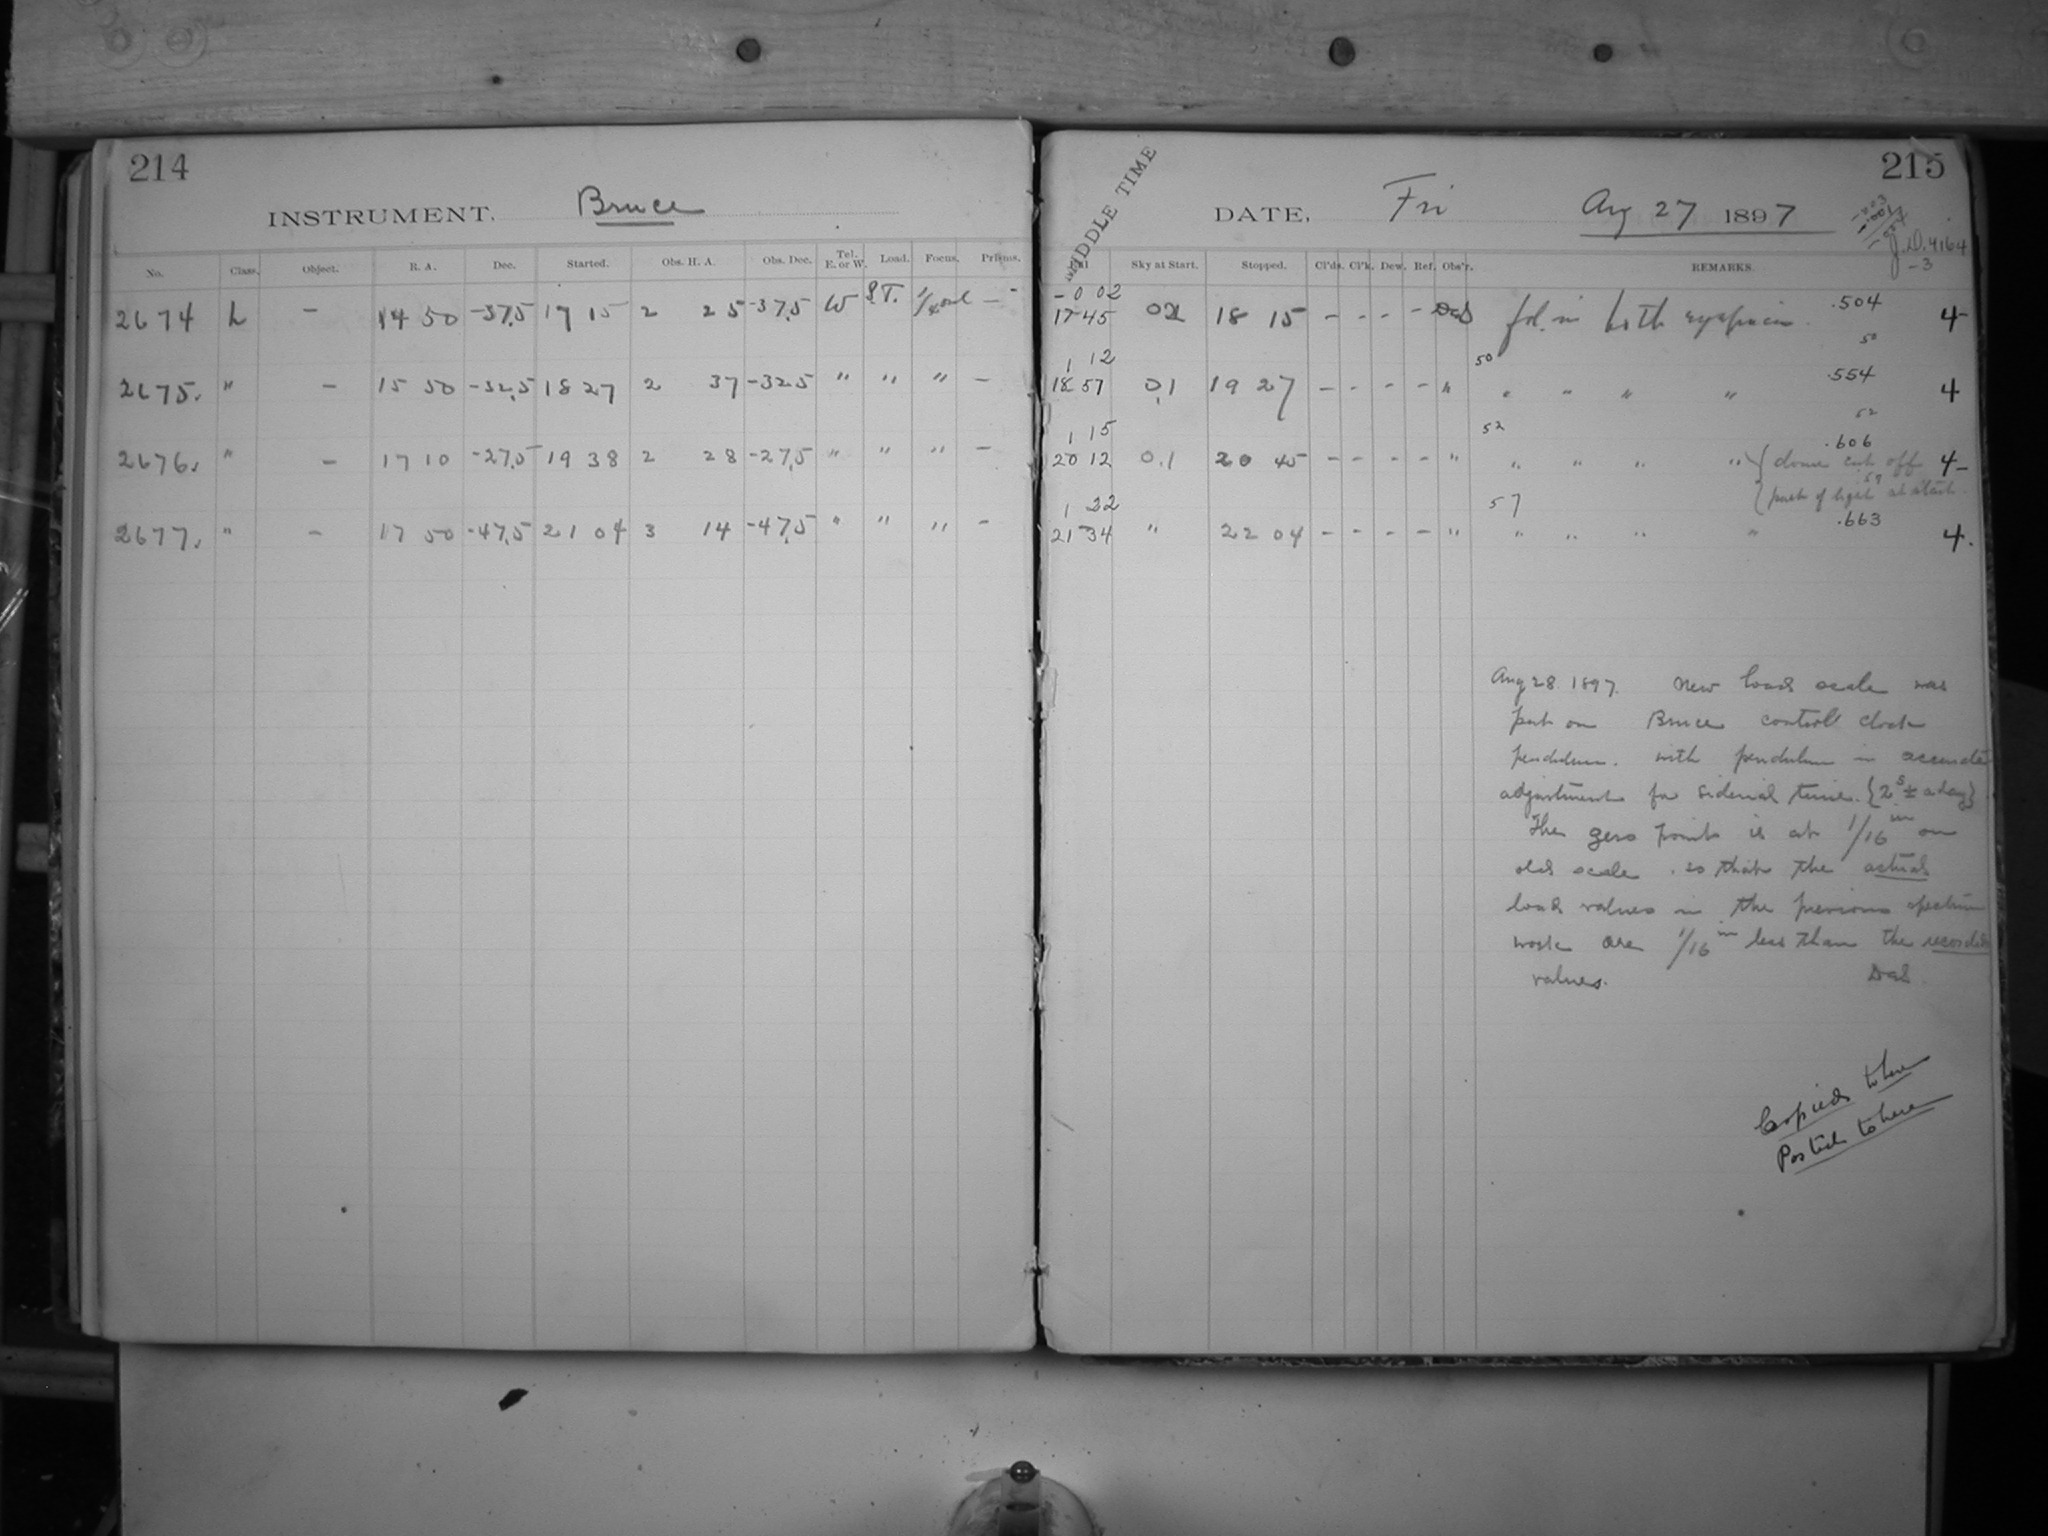 214
INSTRUMENT, Bruce
No. Class. Object. R. A. Dec. Started. Obs. H. A. Obs. Dec. Tel. E. or W. Load. Focus. Prisms.
2674 L - 14 50 -37,5 17 15 2 25 -37,5 W S.T. -
2675. " - 15 50 -32,5 18 27 2 37 -32 5 " " " -
2676. " - 17 10 -27,5 19 38 2 28 -27,5 " " " -
2677. " - 17 50 -47,5 21 04 3 14 -47,5 " " " -
215
MIDDLE TIME
DATE, Fri Aug 27 1897
J.D. 4164
-3
Sky at Start. Stopped. Cl'ds. Cl'k. Dew. Ref. Obs'r. REMARKS.
-0 02
17 45 02 18 15 - - - - DeS fol. in both .504 4
50
1 12 50
18 57 0,1 19 27 - - - - " " " " " .554 4
52
1 15 52
20 12 0.1 20 45 - - - - " " " " " .606 { dome cut off 4
{ part of light at start.
1 22 57
21 34 " 22 04 - - - - " " " " " .663 4.
Aug 28. 1897. New load scale was
put on Bruce control clock
pendulum. with pendulum in accurate
adjustment for siderial time. {2s ± a day}
The zero point is at 1/16 in on
old scale. so that the actual
load values in the previous spectrum
work are 1/16 in less than the recorded
values. DeS.
Copied to here
Posted to here